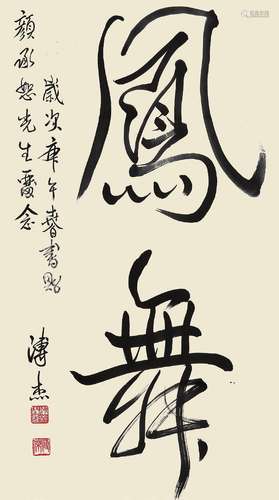 鳳舞
歲次庚午春書貽
顏承恕先生雅念
溥杰